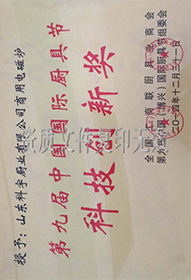 授予：山东科宇厨业有限公司商用电磁炉
第九届中国国际厨具节
科技创新奖
全国工商联厨具业商会
第九届中国(博兴)国际厨具节组委会
二〇一四年十二月三十一日
资质文件复印无效